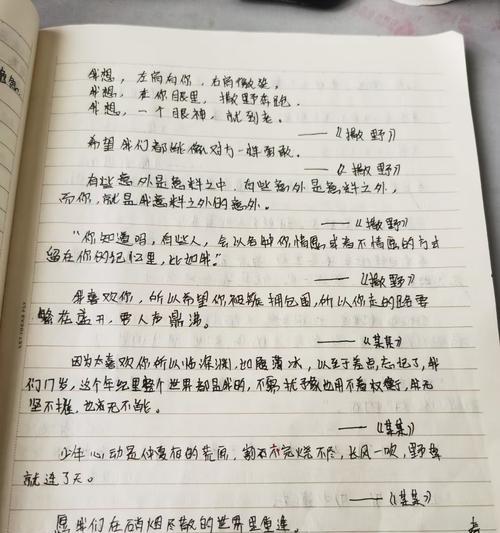 我想，左肩有你，右肩微笑，
我想，在你眼里，撒野奔跑，
我想，一个眼神，就到老。
——《撒野》
希望我们都能像对方一样勇敢。
——《撒野》
有些意外是意料之中，有些意外是意料之外，
而你，就是我意料之外的意外。
——《撒野》
“你知道吗，有些人，会以各种你情愿或者不情愿的方式
留在你的记忆里，比如我。”
——《撒野》
我喜欢你，所以希望你被簇拥包围，所以你走的路要
繁花盛开，要人声鼎沸。
——《某某》
因为太喜欢你所以临深渊，如履薄冰，以至于差点忘记了，我
们17岁，这个年纪里整个世界都是我的，不需 也用不着权衡，我无
坚不摧，也无所不能。
——《某某》
少年心动是仲夏夜的荒原，割不完烧不尽，长风一吹，野草
就连了天。
——《某某》
愿我们在硝烟尽散的世界里重逢